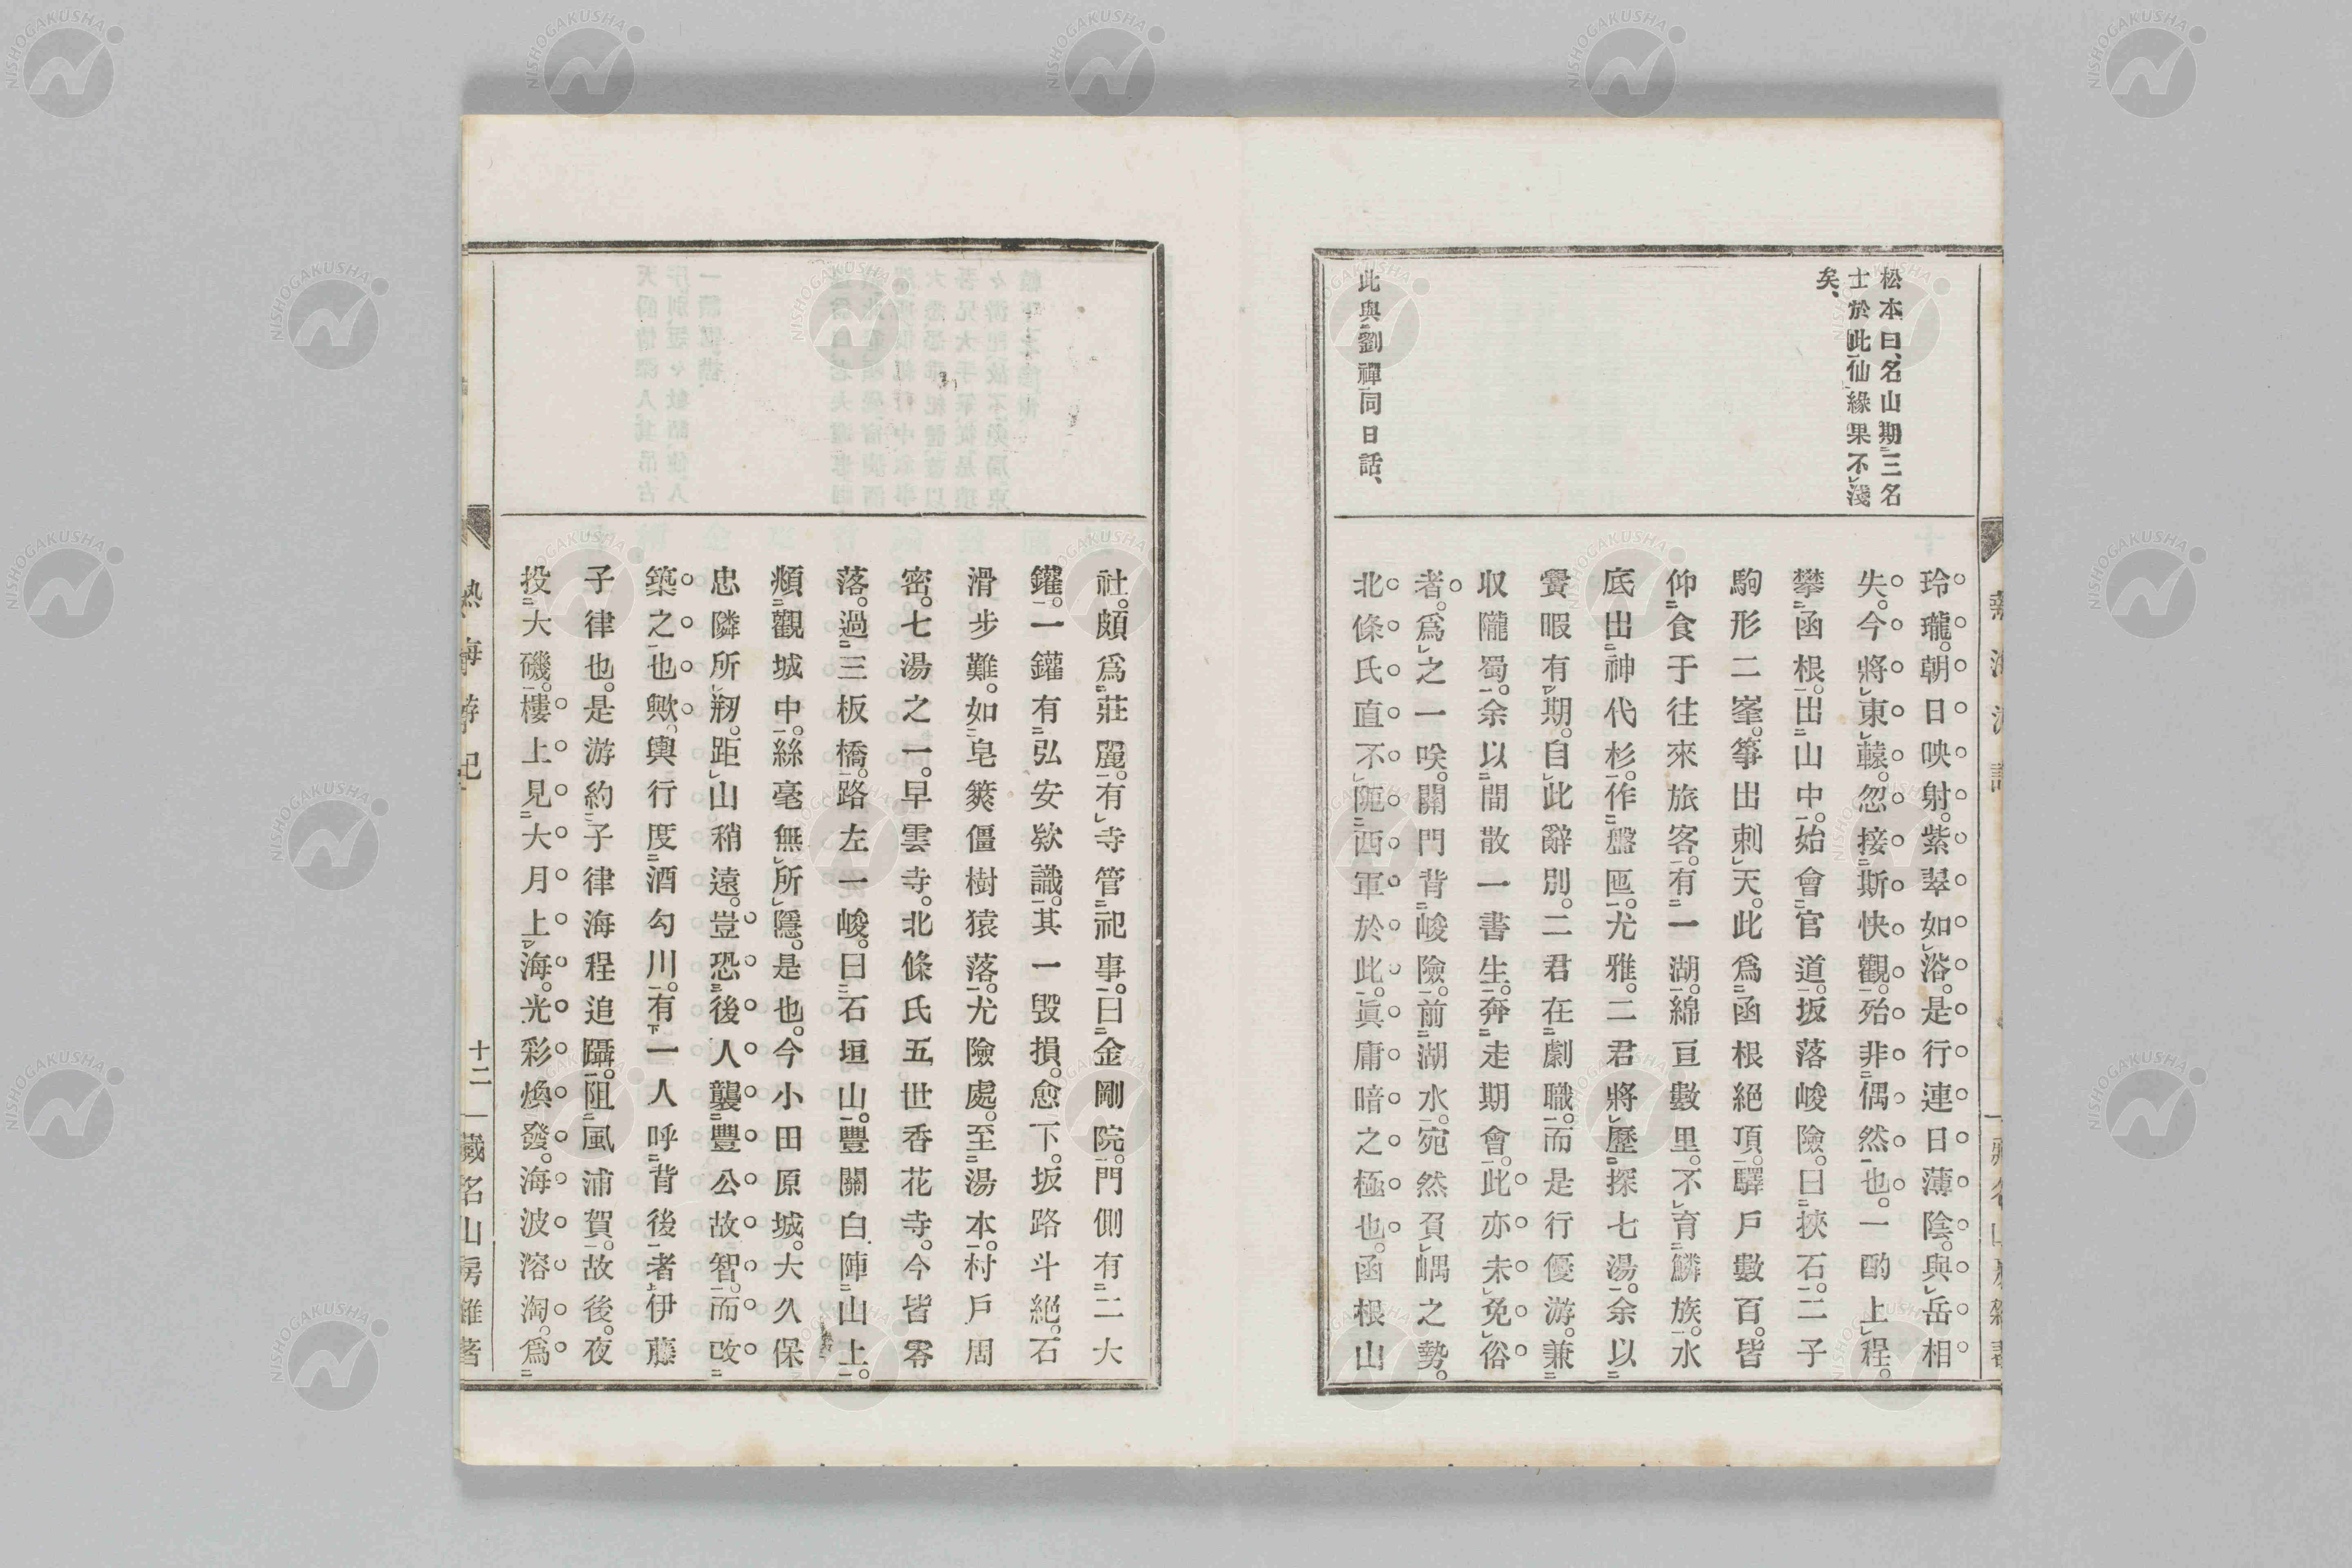 松本曰、名山期三名
士於此、仙緣果不淺
矣、
此與劉禪同日話、
玲瓏。朝日映射。紫翠如浴。是行連日薄陰。與岳相
失。今將東轅。忽接斯快觀。殆非偶然也。一酌上程。
攀函根。出山中。始會官道。坂落峻險。曰挾石。二子
駒形二峯。筝出刺天。此爲函根絕頂。驛戶數百。皆
仰食于往來旅客。有一湖。綿亘數里。不育鱗族。水
底出神代杉。作盤匜。尤雅。二君將歷探七湯。余以
釁暇有期。自此辭別。二君在劇職。而是行優游。兼
収隴蜀。余以間散一書生。奔走期會。此亦未免俗
者。爲之一咲。關門背峻險。前湖水。宛然負嵎之勢。
北條氏直不阨西軍於此。眞庸暗之極也。函根山
社。頗爲莊麗。有寺管祀事。曰金剛院。門側有二大
鑵。一鑵有弘安欵識。其一毀損。愈下。坂路斗絕。石
滑步難。如皂莢僵樹猿落。尤險處。至湯本。村戶周
密。七湯之一。早雲寺。北條氏五世香花寺。今皆零
落。過三板橋。路左一峻。曰石垣山。豐關白陣山上。
頫觀城中。絲毫無所隱。是也。今小田原城。大久保
忠隣所刱。距山稍遠。豈恐後人襲豐公故智。而改
築之也歟。輿行度酒勾川。有一人呼背後者。伊藤
子律也。是游約子律海程追躡。阻風浦賀。故後。夜
投大磯。樓上見大月上海。光彩煥發。海波溶淘。爲
熱海游記
十二
藏名山房雜著